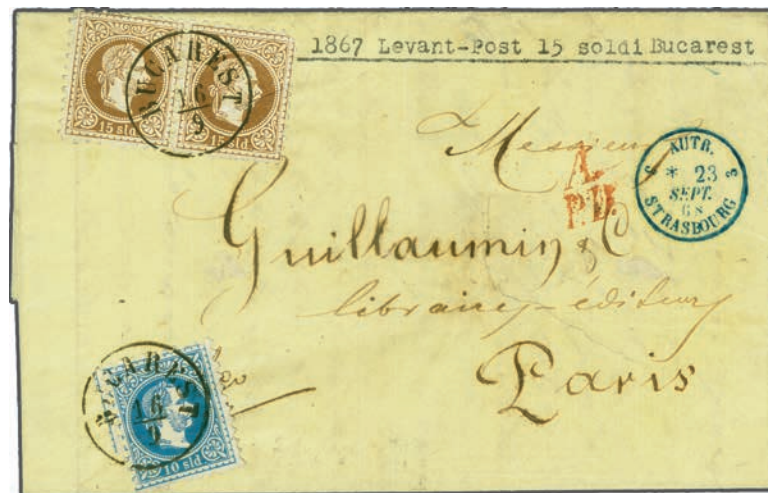 1867 Levant-Post 15 soldi Bucarest
BUCAREST
16
9
15 sld
15 sld
Messieurs
A.
P.D.
AUTR.
3 * 23 3
SEPT.
68
STRASBOURG
Guillaumin & C
libraires-éditeurs
Paris
BUCAREST
16
9
10 sld